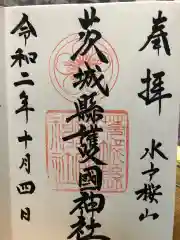 奉拝
水戸桜山
茨城縣護國神社
令和二年十月四日